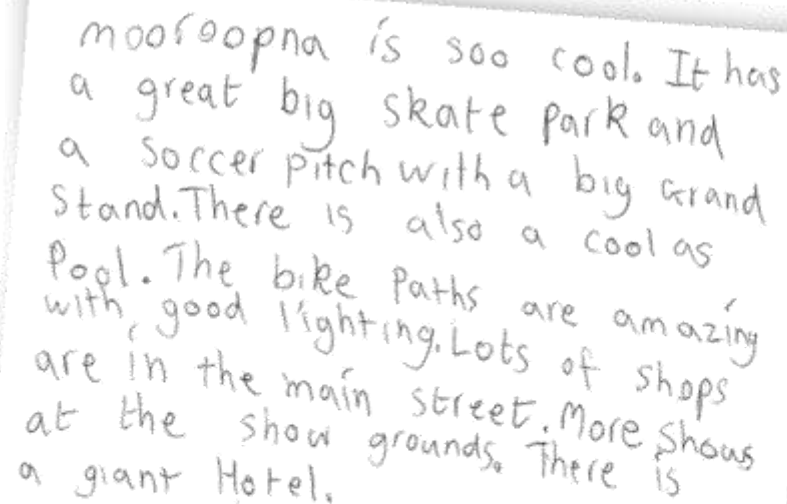 mooroopna is soo cool. It has
a great big skate park and
a soccer pitch with a big Grand
Stand. There is also a cool as
Pool. The bike Paths are amazing
with good lighting. Lots of shops
are in the main street. More shows
at the show grounds. There is
a giant Hotel.